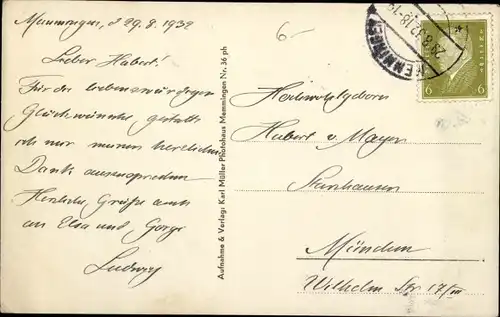 Memmingen, d 29.8.1932
Lieber Hubert!
Für die liebenswürdigen
Glückwünsche, gestatte
ich mir meinen herzlichen
Dank auszusprechen
Herzliche Grüße auch
an Elsa und
Ludwig
Aufnahme & Verlag: Karl Müller Photohaus Memmingen Nr. 36 ph
6-
MEMMINGEN
29.8.32.18-19
6 6
Hochwohlgeboren
Hubert v. Mayer
München
Wilhelm Str 17/III